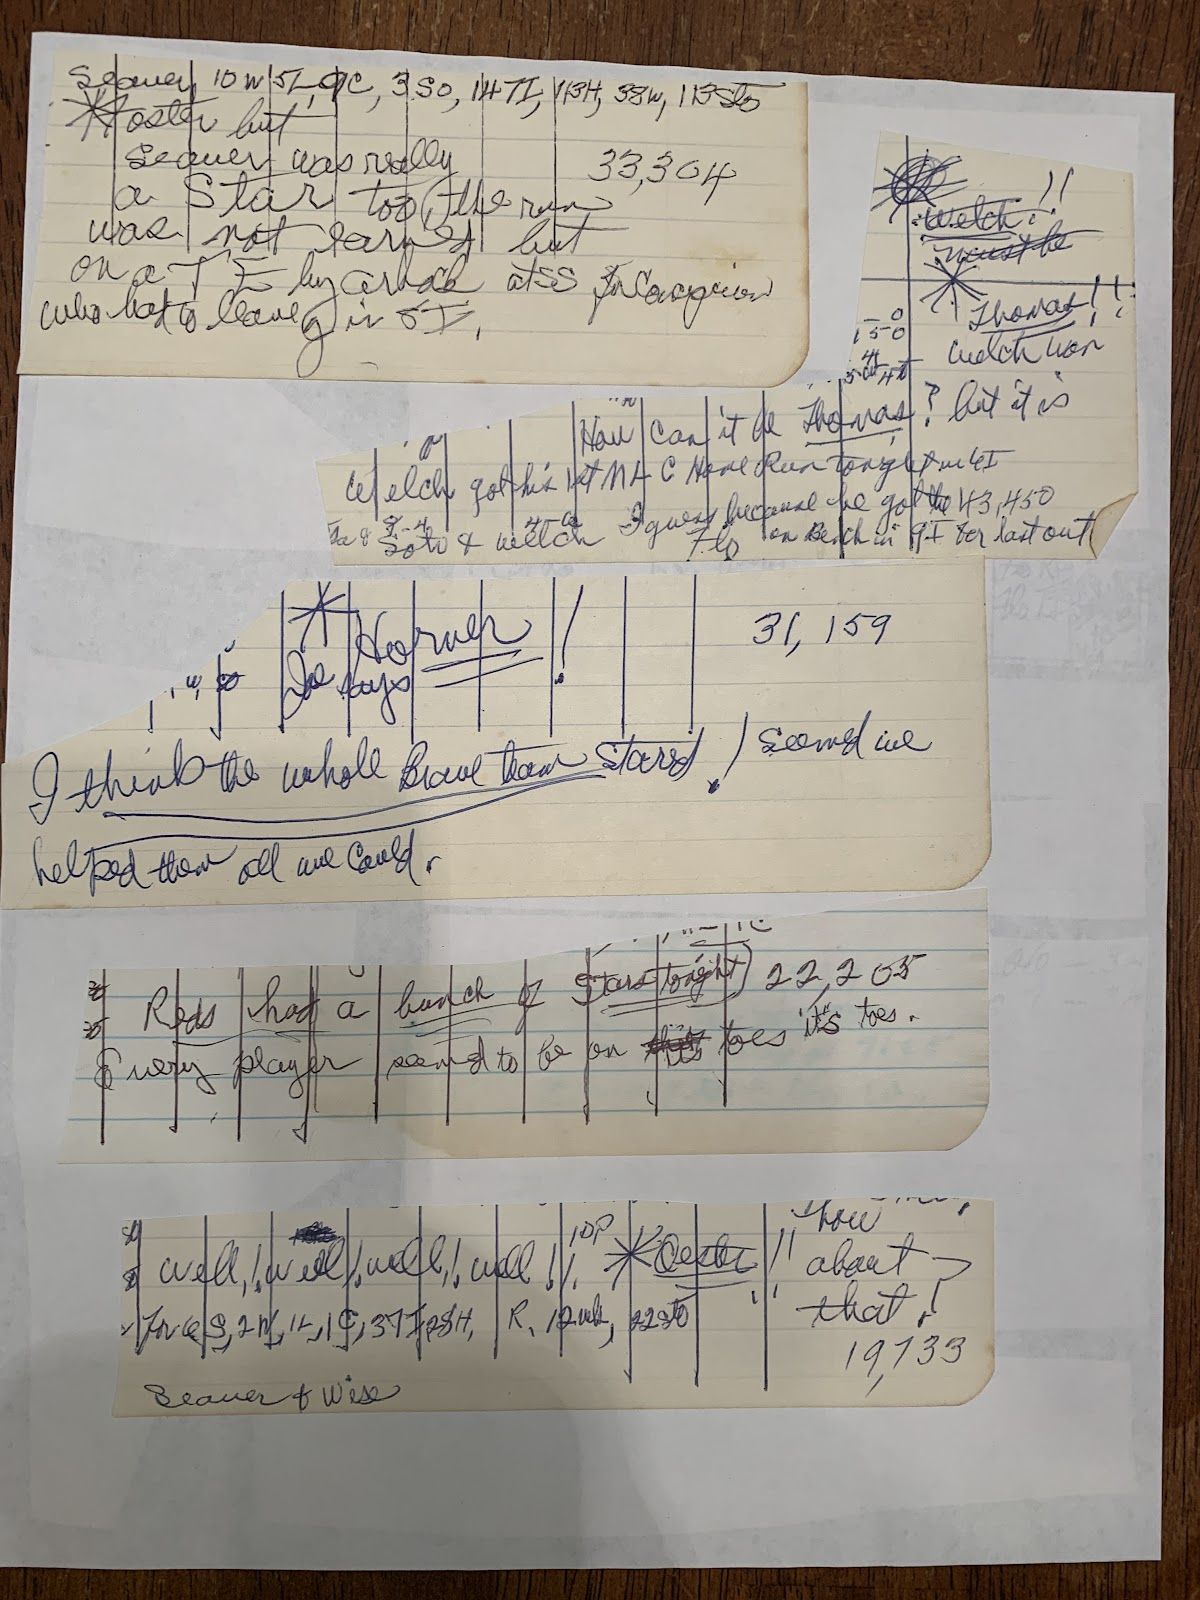 Seaver, 10W, 5L, 9C, 3SO, 147I, 113H, 38W, 113Sto
Foster but
Seaver was really 33,304
a Star too, the run
was not earned but
on a T E by at SS for Concepcion
who had to leave g in 5I.
Welch!!
must be
Thomas!!
Welch won
How can it be Thomas? but it is
Welch got his 1st M L C Home Run tonight in 6I
Soto & Welch I guess because he got the 43,450
Flo on Bench in 9I for last out
Horner! 31,159
Joe says
I think the whole Brave team Starred! Seemed we
helped them all we could.
Reds had a bunch of Stars tonight 22,205
Every player seemed to be on toes "it's toes.
Well,! Well!, well,! well!! 1DP Oester!! How
about
that!
for 6S, 2W, 1L, 1C, 37I, 28H, R, 12wk, 22sto
19,733
Seaver & Wise